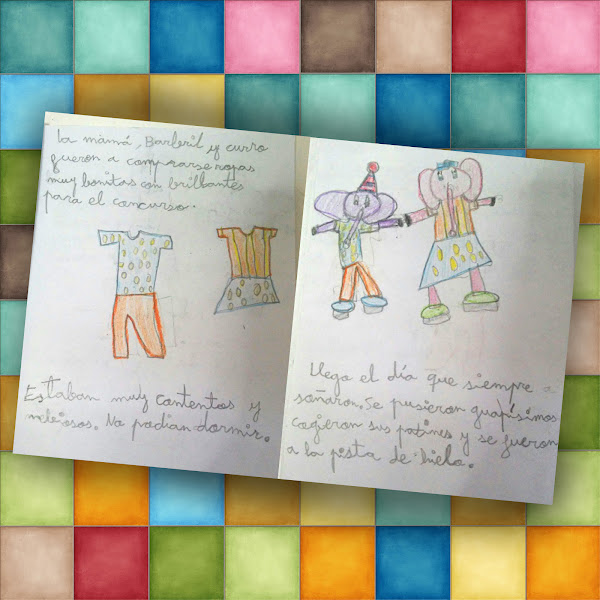 La mamá, Barberil y curro
fueron a comprarse ropas
muy bonitas con brillantes
para el concurso.
Estaban muy contentos y
No podian dormir.
Llego el día que siempre
soñaron. Se pusieron guapísimos
cogieron sus patines y se fueron
a la pista de hielo.